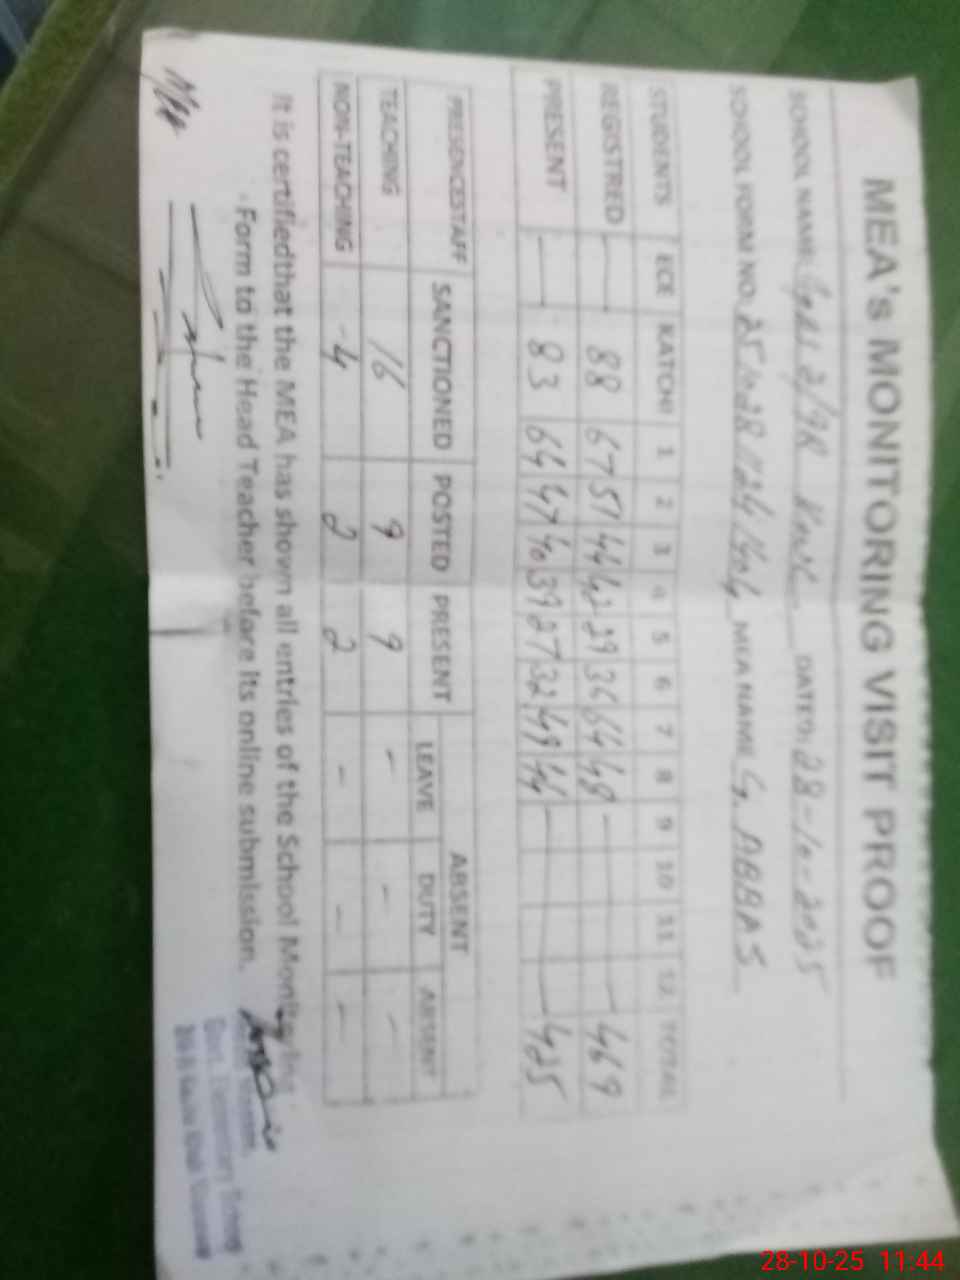 MEA's MONITORING VISIT PROOF
SCHOOL NAME: 2/9R DATED: 28-10-2025
SCHOOL FORM NO: MEA NAME G. ABBAS
STUDENTS ECE KATCHI 1 2 3 4 5 6 7 8 9 10 11 12 TOTAL
REGISTRED — 88 67 51 44 42 29 36 64 48 — 469
PRESENT — 83 64 47 40 39 27 32 49 44 — 425
PRESENCESTAFF SANCTIONED POSTED PRESENT ABSENT
LEAVE DUTY ABSENT
TEACHING 16 9 9 - - -
NON-TEACHING 4 2 2 - - -
It is certifiedthat the MEA has shown all entries of the School Monitoring
Form to the Head Teacher before its online submission.
MEA
28-10-25 11:44